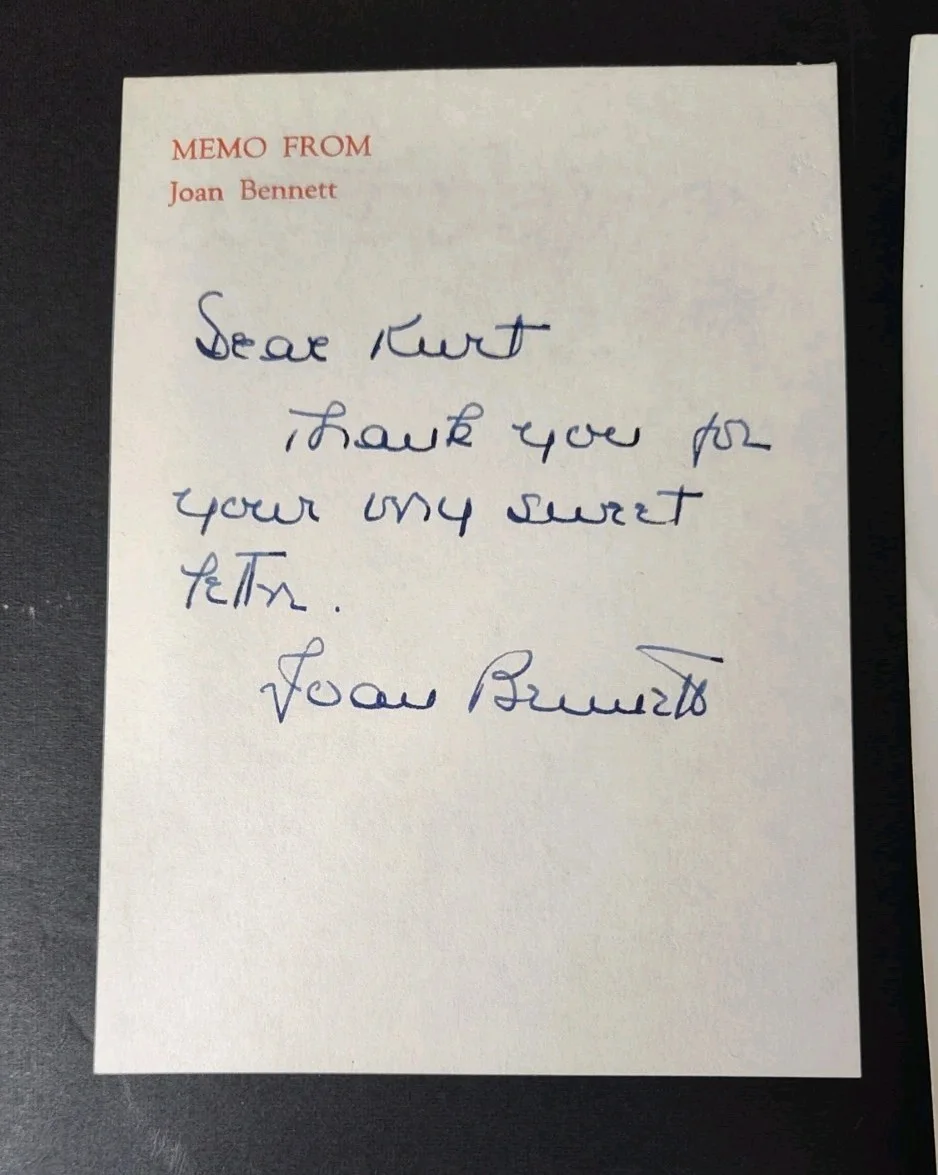 MEMO FROM
Joan Bennett
Dear Kurt
Thank you for
your very sweet
letter.
Joan Bennett